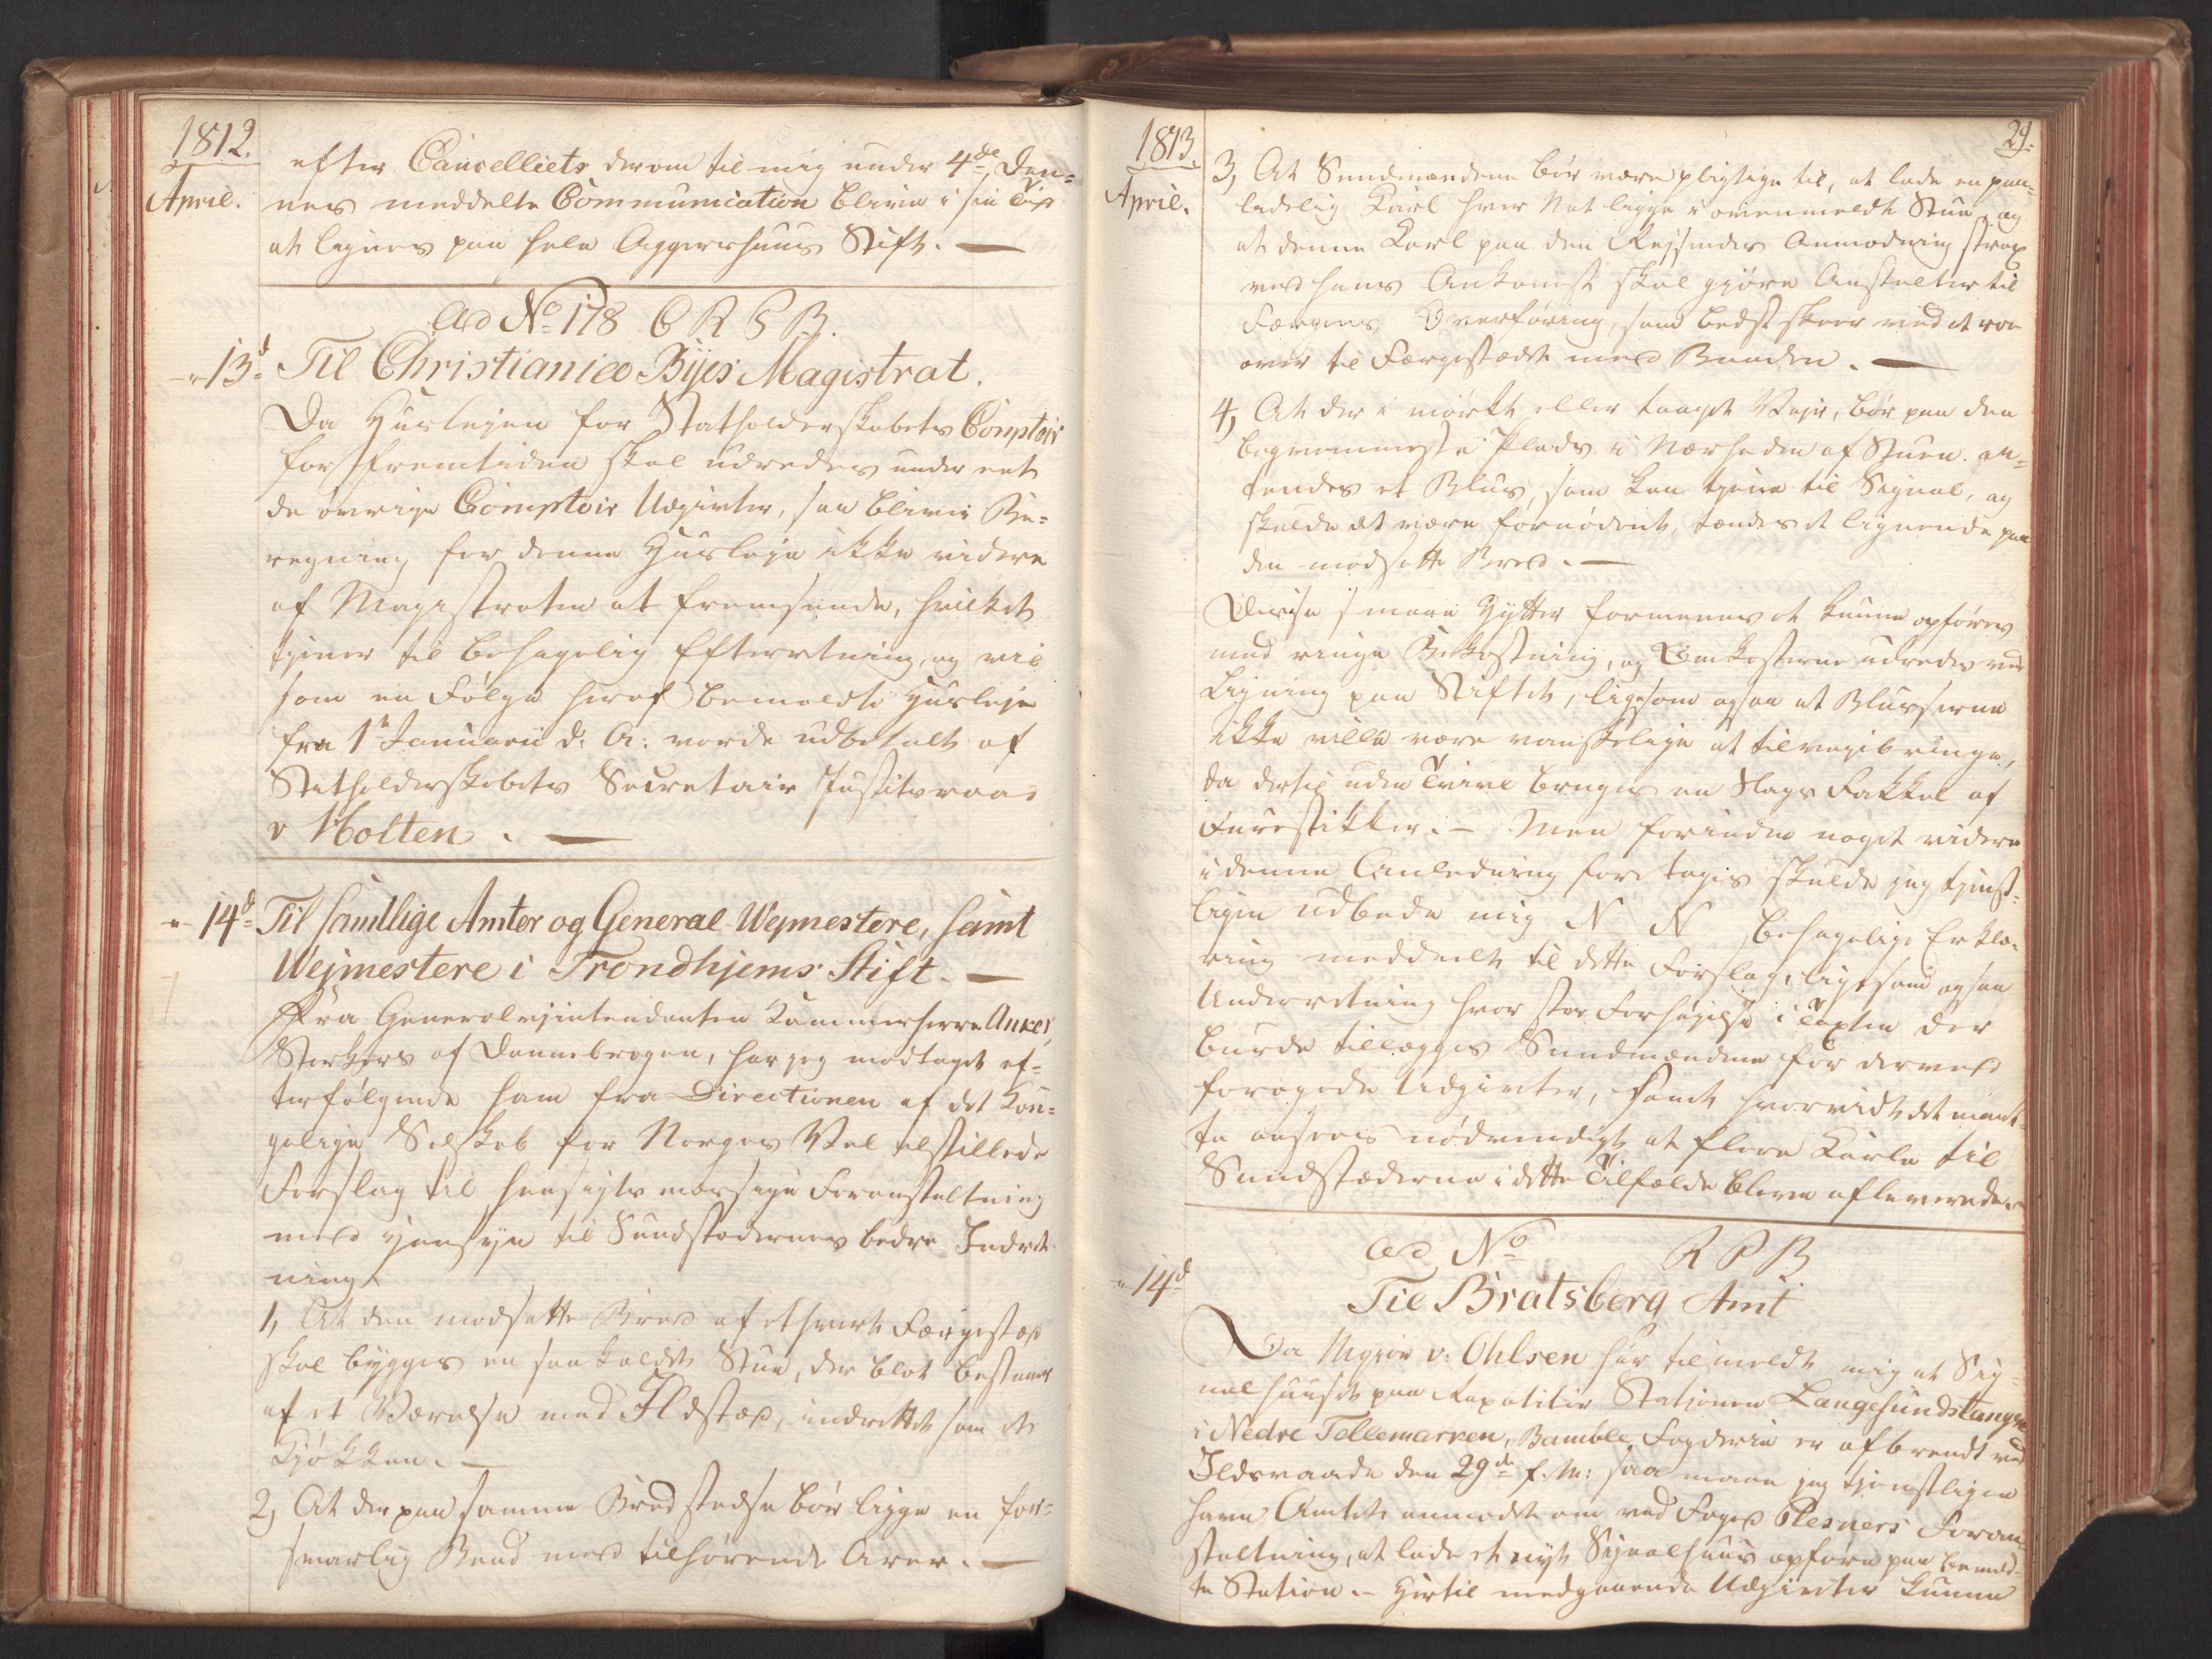 1812.
April.
efter Cancelliets derom til mig under 4de Den=
nes meddelte Communication blive i sin Tid
at lignes paa hele Aggerhuus Stift. —
Ad No 178 C R S B.
" 13d Til Christiania Byes Magistrat.
Da Huslejen for Statholderskabets Comptoir
for Fremtiden skal udredes under eet
de øvrige Comptoir Udgivter, saa bliver Be=
regning for denne Husleje ikke videre
af Magistraten at fremsende, hvilket
tjener til behagelig Efterretning, og vil
som en Følge heraf bemeldte Husleje
fra 1te Januarii d: A: vorde udbetalt af
Statholderskabets Secretair Justitsraad
v Holten. —
" 14d Til samtlige Amter og General-Wejmestere, samt
Wejmestere i Trondhjems Stift. —
Fra Generalvejintendanten Kammerherre Anker,
Storkors af Dannebrogen, har jeg modtaget ef=
terfølgende ham fra Directionen af det Kon=
gelige Selskab for Norges Vel tilstillede
Forslag til hensigtsmæssige Foranstaltning
med Hensyn til Sundstædernes bedre Indret
ning
1, At den modsatte Bred af ethvert Færgestæd
skal bygges en saakaldet Stue, der blot bestaaer
af et Værelse med Ildstæd, indrettet som et
Kjøkken. —
2, At der paa samme Bred stedse bør ligge en for=
svarlig Baad med tilhørende Arer. —
1813.
April.
29.
3, At Sundmændene bør være pligtige til, at lade en paa=
lidelig Karl hver Nat ligge i ovenmeldte Stue, og
at denne Karl paa den Rejsendes Anmodning strax
ved hans Ankomst skal gjøre Anstalter til
Færgens Overføring, som bedst skeer ved at roe
over til Færgestædet med Baaden. —
4, At der i mørkt eller taaget Vejr, bør paa den
beqvemmeste Plads i Nærheden af Stuen an=
tændes et Blus, som kan tjene til Signal, og
skulde det være fornødent, tændes et lignende paa
den modsatte Bred. —
Disse smaae Hytter formeenes at kunne opføres
med ringe Bekostning, og Omkosterne udredes ved
Ligning paa Stiftet, ligesom ogsaa at Blussene
ikke ville være vanskelige at tilvejebringe,
da dertil uden Tvivl bruges en Slags Fakkel af
Furestikker. — Men forinden noget videre
i denne Anledning foretages skulde jeg tjenst=
ligen udbede mig N N behagelige Erklæ=
ring meddeelt til dette Forslag, ligesom ogsaa
Underretning hvor stor Forhøjelse i Taxten der
burde tillægges Sundmændene for derved
forøgede Udgivter, samt hvorvidt det maat=
te ansees nødvendigt at flere Karle til
Sundstæderne i dette Tilfælde bleve afleverede.
Ad No R S B
" 14d Til Bratsberg Amt
Da Major v: Ohlsen har tilmeldt mig at Sig=
nalhuuset paa Repetiteer Stationen Langesundstangen
i Nedre Tellemarken, Bamble Fogderie er afbrændt ved
Ildsvaade den 29de f. M: saa maae jeg tjenstligen
have Amtet anmodet om ved Foged Plesners Foran=
staltning, at lade et nyt Signalhuus opføre paa bemeld=
te Station. — Hertil medgaaende Udgivter kunne